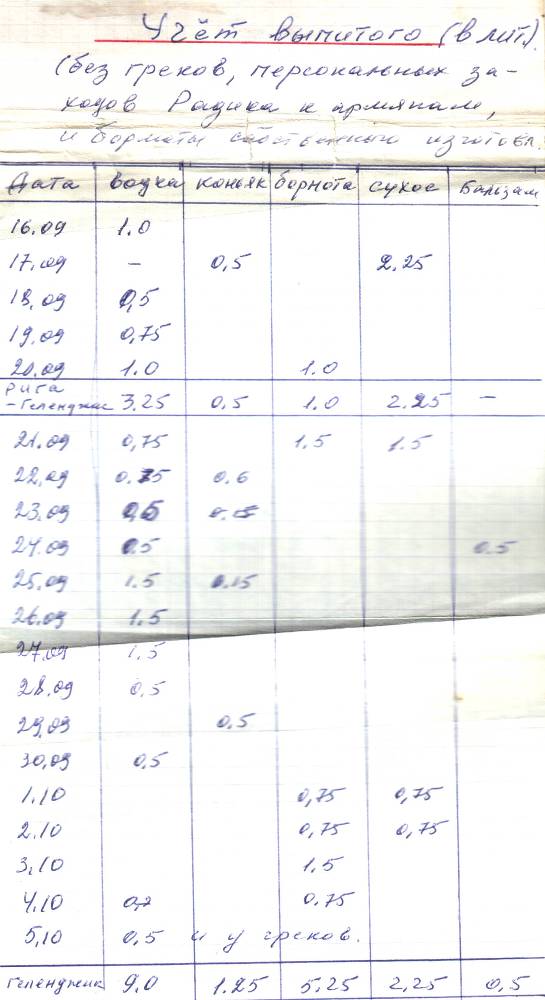 Учёт выпитого (в лит.)
(без греков, персональных за-
ходов Радика к армянам,
и бормоты собственного изготовл.
Дата водка коньяк бормота сухое Бальзам
16.09 1.0
17.09 – 0,5 2.25
18.09 0,5
19.09 0,75
20.09 1.0 1.0
Рига
– Геленджик 3.25 0,5 1.0 2.25 –
21.09 0,75 1.5 1.5
22.09 0.75 0.6
23.09 0,5
24.09 0.5 0.5
25.09 1.5 0.15
26.09 1.5
27.09 1.5
28.09 0,5
29.09 0.5
30.09 0,5
1.10 0,75 0,75
2.10 0,75 0,75
3.10 1.5
4.10 0,7 0.75
5,10 0.5 и у греков.
Геленджик 9.0 1.25 5.25 2,25 0,5